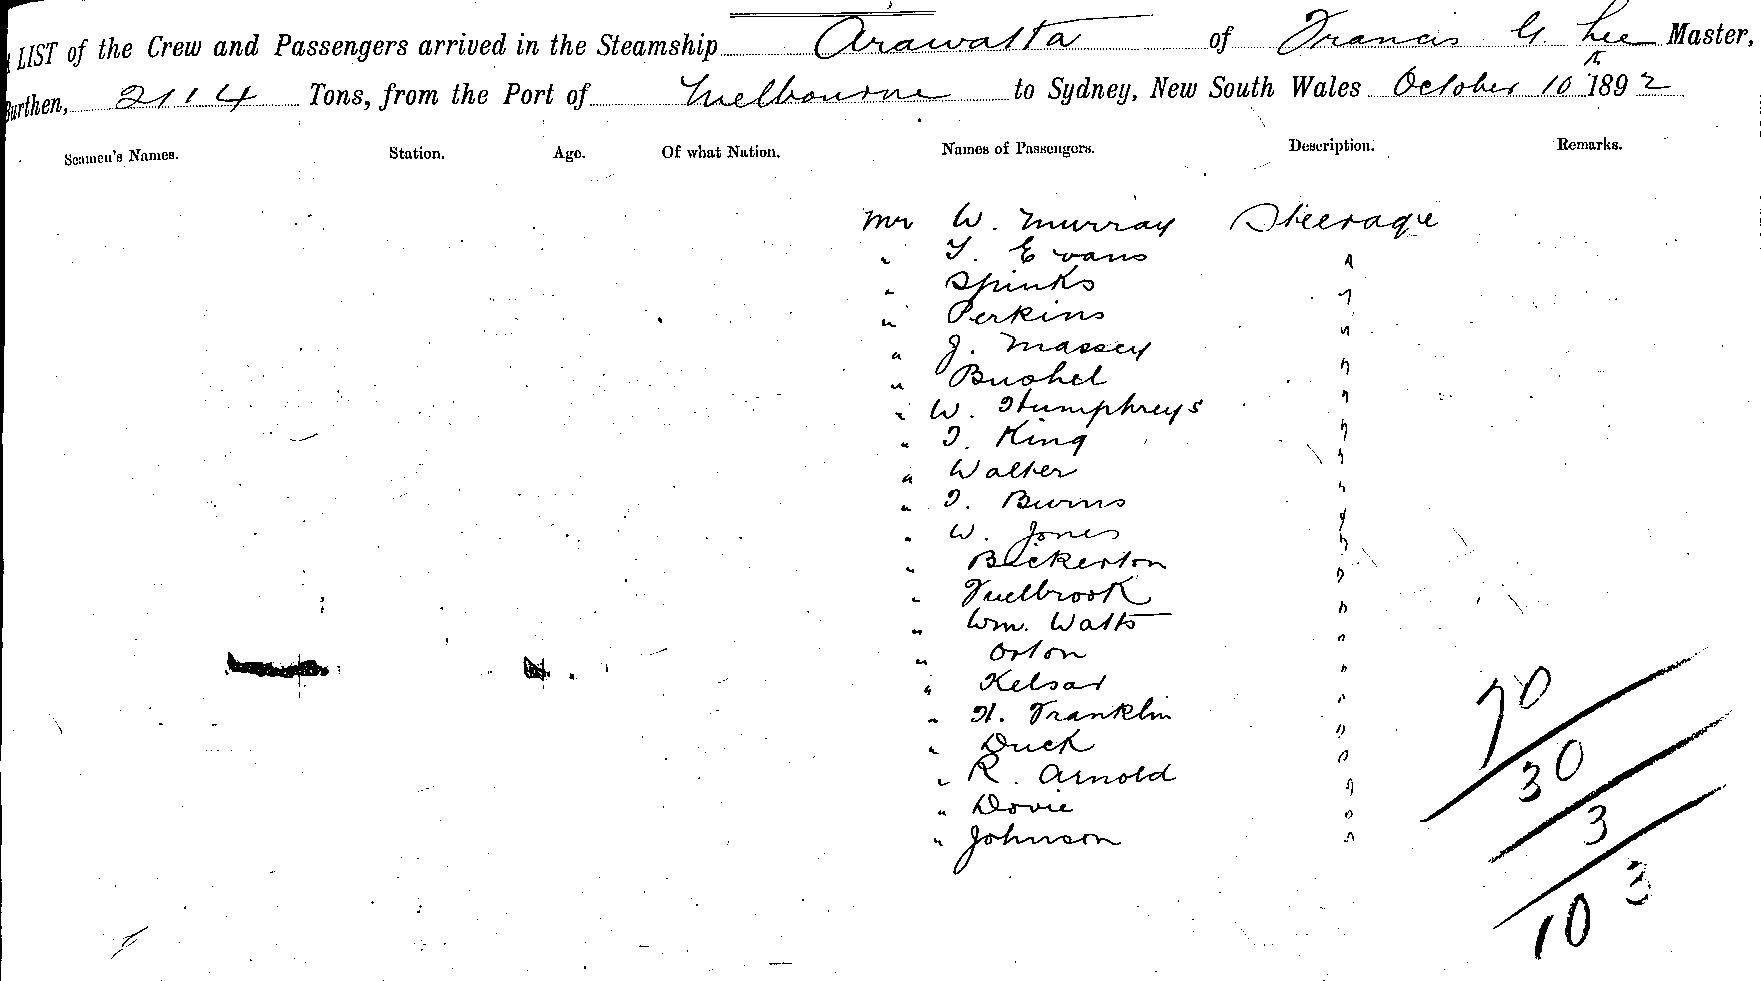 A LIST of the Crew and Passengers arrived in the Steamship Arawatta of Francis G. Lee Master,
Burthen, 2114 Tons, from the Port of Melbourne to Sydney, New South Wales October 10th 1892
Seamen's Names. Station. Age. Of what Nation. Names of Passengers. Description. Remarks.
Mr W. Murray Steerage
" T. Evans "
" Spinks "
" Perkins "
" J. Massey "
" Bushel "
" W. Humphreys "
" T. King "
" Walter "
" T. Burns "
" W. Jones "
" Bickerton "
" Fuelbrook "
" Wm. Watts "
" Orton "
" Kelsar "
" H. Franklin "
" Duck "
" R. Arnold "
" Dovie "
" Johnson "
70
30
3
103